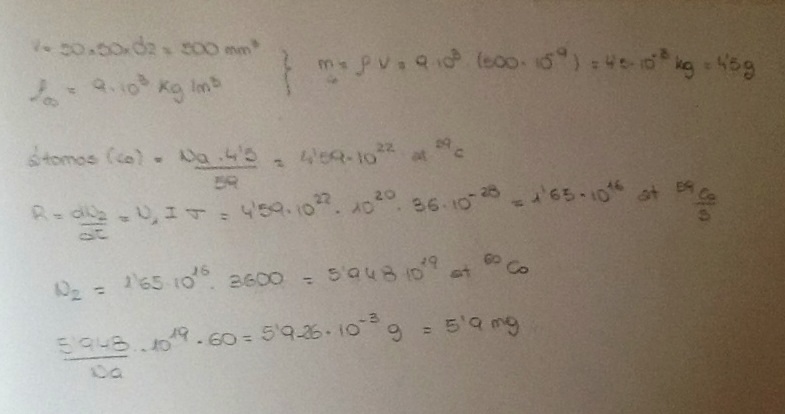 V = 50 × 50 × 0'2 = 500 mm³
ρ_co = 9·10³ Kg/m³ } m = ρ V = 9·10³ (500·10⁻⁹) = 4'5·10⁻³ kg = 4'5g
átomos (co) = Na·4'5 / 59 = 4'59·10²² at ⁵⁹C
R = dN₂/dt = N₁ I σ = 4'59·10²² · 10²⁰ · 36·10⁻²⁸ = 1'65·10¹⁶ at ⁵⁹Co/s
N₂ = 1'65·10¹⁶ · 3600 = 5'948·10¹⁹ at ⁶⁰Co
5'948/Na · 10¹⁹ · 60 = 5'926·10⁻³ g = 5'9 mg